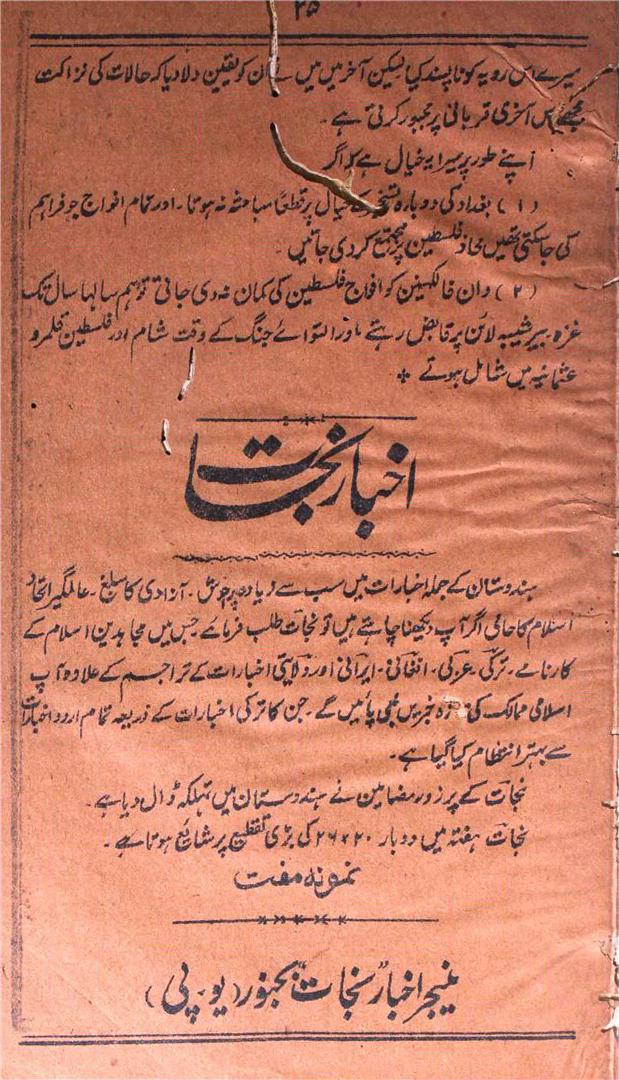 ۲۵
میرے اس رویہ کو ناپسند کیا لیکن آخر میں میں نے ان کو یقین دلادیا کہ حالات کی نزاکت
مجھے اس آخری قربانی پر مجبور کرتی ہے۔
اپنے طور پر میرا یہ خیال ہے کہ اگر
(۱) بغداد کی دوبارہ تسخیر کے خیال پر قطعاً مباحثہ نہ ہوتا۔ اور تمام افواج جو فراہم
کی جاسکتی تھیں محاذ فلسطین پر مجتمع کردی جاتیں۔
(۲) وان فالکہنین کو افواج فلسطین کی کمان نہ دی جاتی تو ہم سالہا سال تک
غزہ۔ بیر شیبہ لائن پر قابض رہتے اور التوائے جنگ کے وقت شام اور فلسطین قلمرو
عثمانیہ میں شامل ہوتے ٭
اخبار نجات
ہندوستان کے جملہ اخبارات میں سب سے زیادہ پرجوش۔ آزادی کا مبلغ۔ عالمگیر اتحاد
اسلام کا حامی اگر آپ دیکھنا چاہتے ہیں تو نجات طلب فرمائے جس میں مجاہدین اسلام کے
کارنامے۔ ترکی۔ عربی۔ افغانی۔ ایرانی اور ولایتی اخبارات کے تراجم کے علاوہ آپ
اسلامی ممالک کی تازہ خبریں بھی پائیں گے۔ جن کا ترکی اخبارات کے ذریعہ تمام اردو اخبارات
سے بہتر انتظام کیا گیا ہے۔
نجات کے پرزور مضامین نے ہندوستان میں تہلکہ ڈال دیا ہے۔
نجات ہفتہ میں دو بار ۲۰×۲۶ کی بڑی تقطیع پر شایع ہوتا ہے۔
نمونہ مفت
منیجر اخبار "نجات" بجنور (یو۔پی)